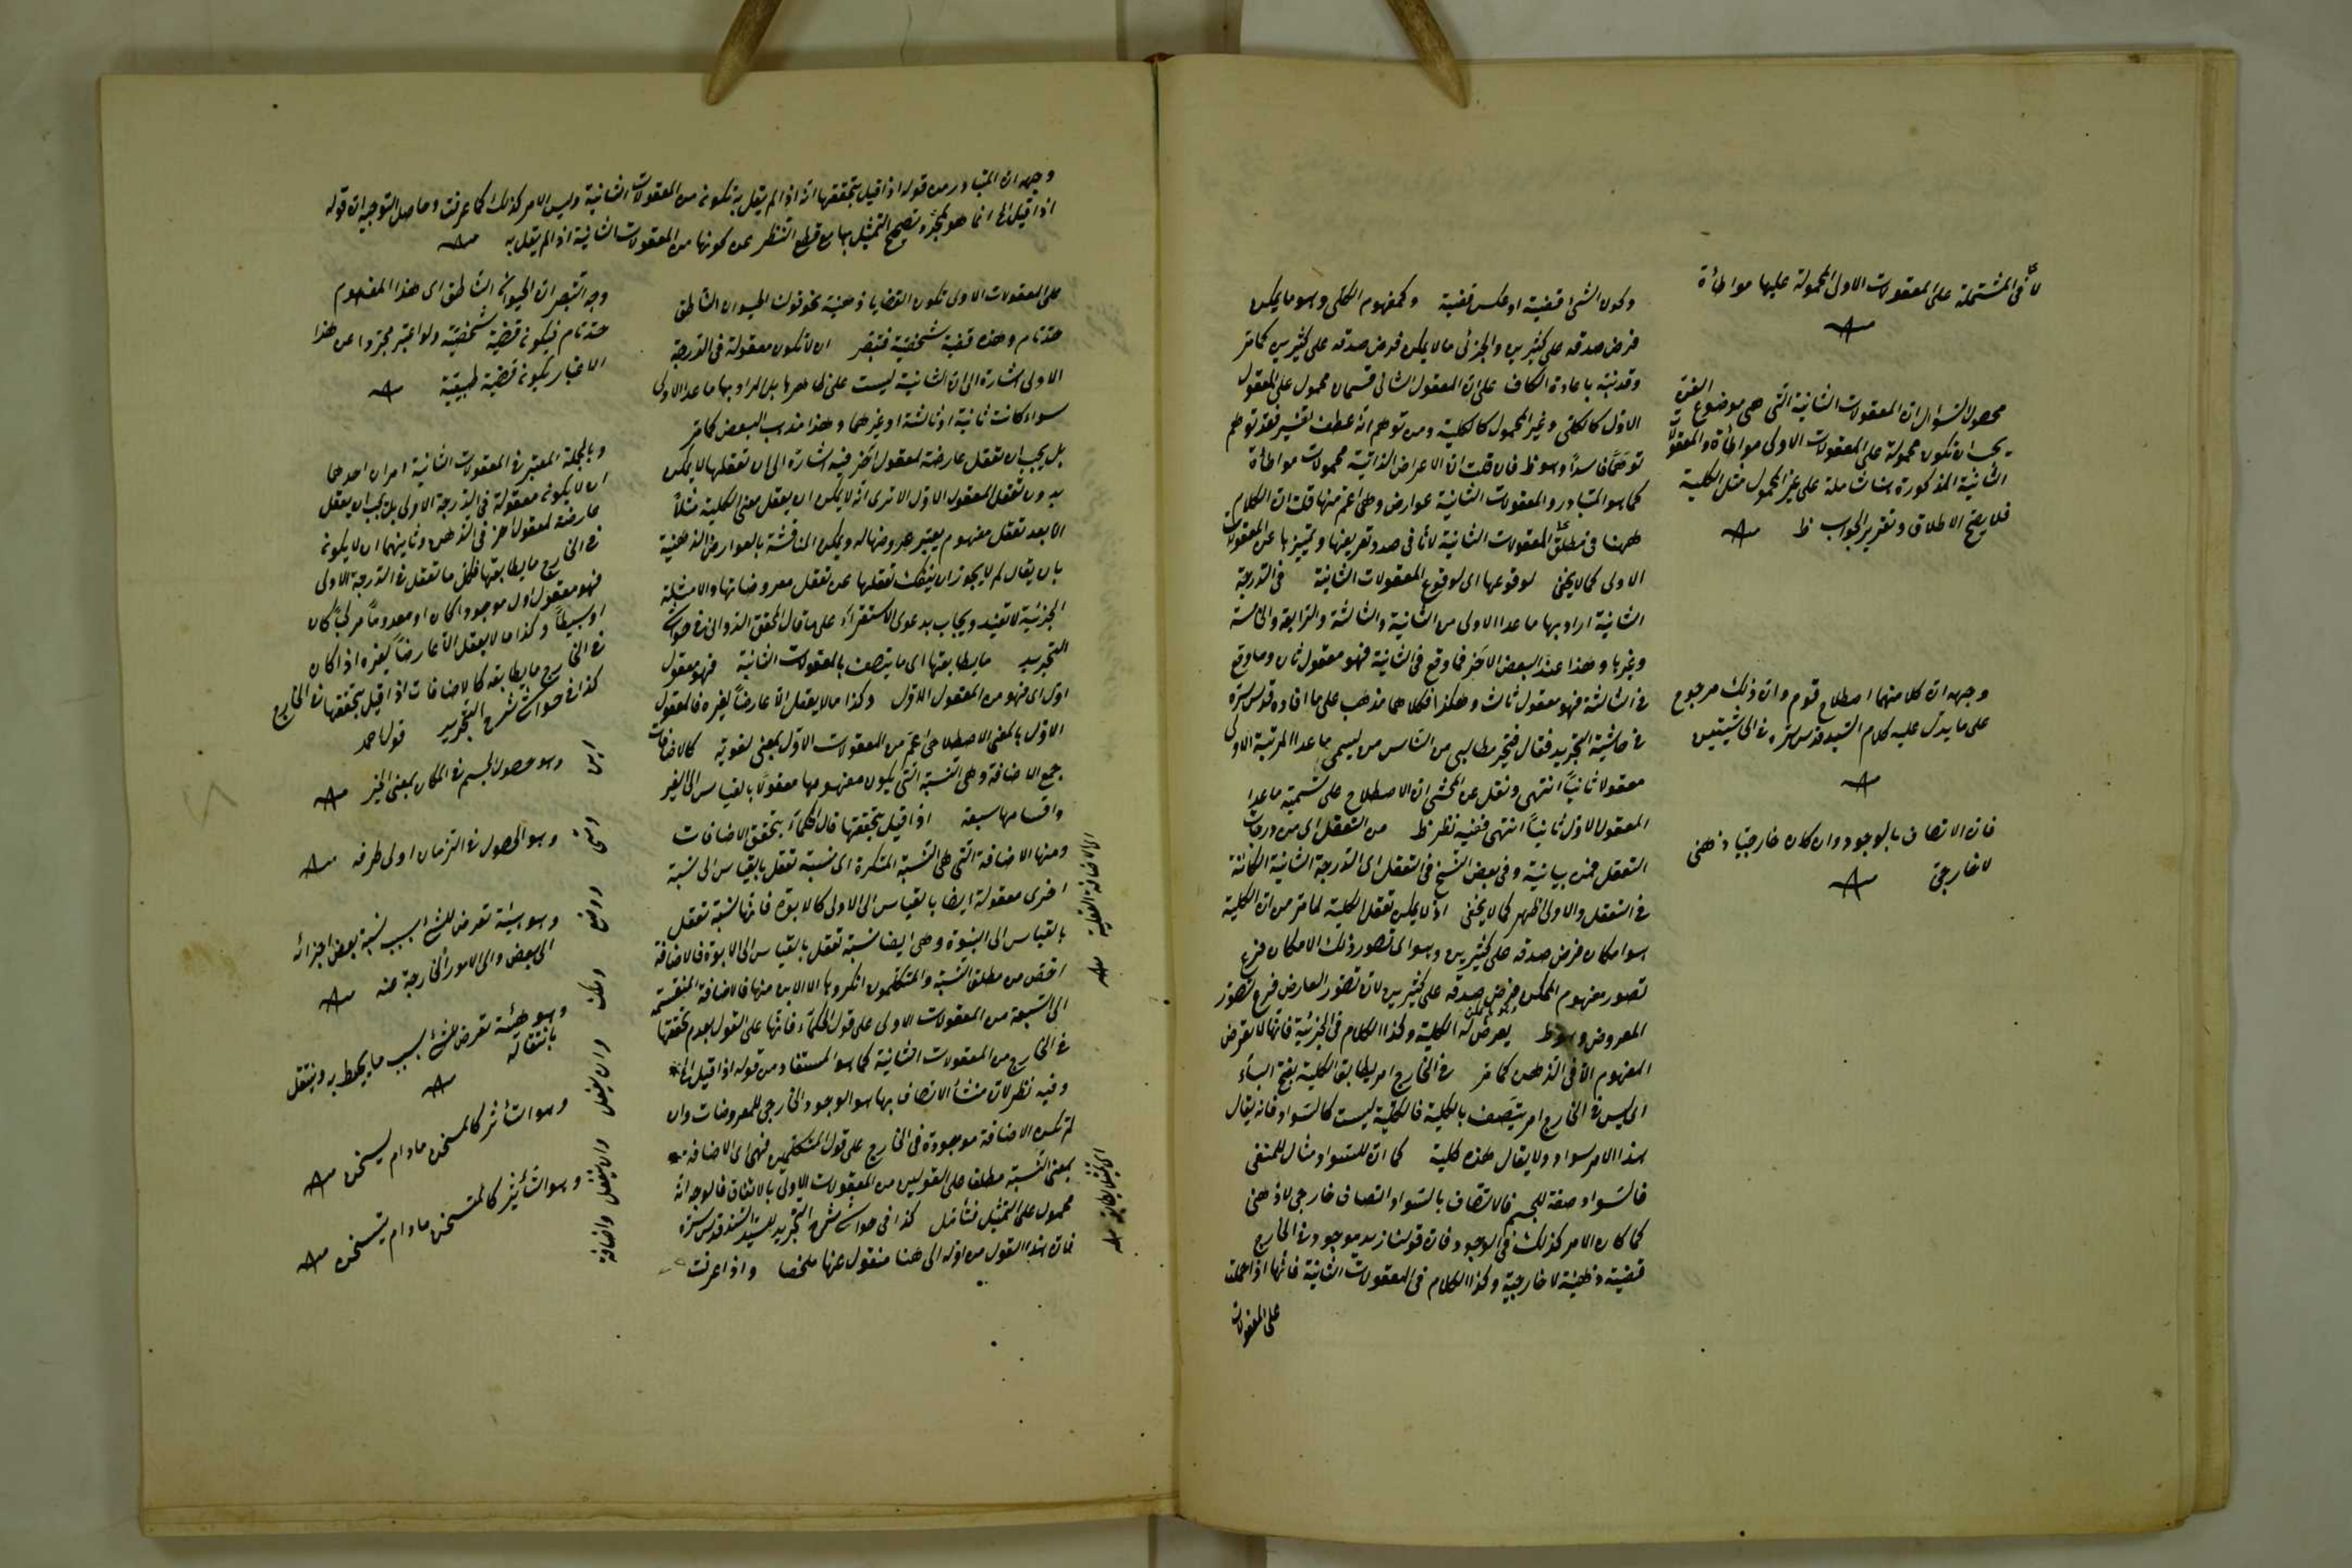 وكون الشئ قضية او عكس قضية وكمفهوم الكلى وهو ما يمكن
فرض صدقه على كثيرين والجزئى ما لا يمكن فرض صدقه على كثيرين كما مر
وقد نبّه باعادة الكاف على ان المعقول الثانى قسمان محمول على المعقول
الاول كالكلى وغير المحمول كالكلية ومن توهم انه عطف تفسير فقد توهم
توهّمًا فاسدًا وهو ظ فان قلت ان الاعراض الذاتية محمولات مواطأة
كما هو المتبادر والمعقولات الثانية عوارض وهى اعم منها قلت ان الكلام
ههنا فى مطلق المعقولات الثانية لانا فى صدد تعريفها وتمييزها عن المعقولات
الاولى كما لا يخفى لوقوعها اى لوقوع المعقولات الثانية فى الدرجة
الثانية اراد بها ما عدا الاولى من الثانية والثالثة والرابعة والخامسة
وغيرها وهذا عند البعض الاخر فما وقع فى الثانية فهو معقول ثان وما وقع
فى الثالثة فهو معقول ثالث وهكذا فكلاهما مذهب على ما افاده قدس سره
فى حاشية التجريد فقال فخير مطالبى من الناس من يسمى ما عدا المرتبة الاولى
معقولا ثانيًا انتهى ونقل عن المحشى ان الاصطلاح على تسمية ما عدا
المعقول الاول ثانيًا انتهى ففيه نظر ظ من التعقل اى من درجات
التعقل فمن بيانية وفى بعض النسخ فى التعقل اى الدرجة الثانية الكائنة
فى التعقل والاولى اظهر كما لا يخفى اذ لا يمكن تعقل الكلية لما مر من ان الكلية
هو امكان فرض صدقه على كثيرين وهو اى تصور ذلك الامكان فرع
تصور مفهوم الممكن فرض صدقه على كثيرين لان تصور العارض فرع تصور
المعروض وهو ظ يعرض له الكلية وكذا الكلام فى الجزئية فانها لا تعرض
المفهوم الا فى الذهن كما مر فى الخارج امر يطابق الكلية بفتح الباء
اى ليس فى الخارج امر يتصف بالكلية فالكلية ليست كالسواد فانه يقال
هذا الامر سواد ولا يقال هذه كلية كما ان للسواد مثال للمنفى
فالسواد صفة للجسم فالاتصاف بالسواد اتصاف خارجى لا ذهنى
كما كان الامر كذلك فى الوجود فان قولنا زيد موجود فى الخارج
قضية ذهنية لا خارجية وكذا الكلام فى المعقولات الثانية فانها اذا حملت
على المعقولات
لا فى المشتملة على المعقولات الاولى المحمولة عليها مواطأة
محصول السؤال ان المعقولات الثانية التى هى موضوع الفن
يجب ان تكون محمولة على المعقولات الاولى مواطأة والمعقولات
الثانية المذكورة هنا شاملة على غير المحمول مثل الكلية
فلا يصح الاطلاق وتقرير الجواب ظ
وجهه ان كلا منهما اصطلاح قوم وان ذلك مرجوع
على ما يدل عليه كلام السيد قدس سره فى الحاشيتين
فان الاتصاف بالوجود وان كان خارجيا ذهنى
لا خارجى
وجهه ان المتبادر من قوله اذا قيل بتحققها انه اذا لم يقل به تكون من المعقولات الثانية وليس الامر كذلك كما عرفت وحاصل التوجيه ان قوله
اذا قيل الخ انما هو لمجرد تصحيح التمثيل بها مع قطع النظر عن كونها من المعقولات الثانية اذا لم يقل به
على المعقولات الاولى تكون القضايا ذهنية نحو قولك الحيوان الناطق
حد تام وهذه قضية شخصية فتبصر ان لا تكون معقولة فى الدرجة
الاولى اشارة الى ان الثانية ليست على ظاهرها بل المراد بها ما عدا الاولى
سواء كانت ثانية او ثالثة او غيرهما وهذا مذهب البعض كما مر
بل يجب ان تعقل عارضة لمعقول اخر فيه اشارة الى ان تعقلها لا يمكن
بدون تعقل المعقول الاول الا ترى انه لا يمكن ان يعقل معنى الكلية مثلًا
الا بعد تعقل مفهوم يعتبر عروضها له ويمكن المناقشة بالعوارض الذهنية
بان يقال لم لا يجوز ان ينفك تعقلها عن تعقل معروضاتها والامثلة
الجزئية لا تفيد ويجاب بدعوى الاستقراء على ما قال المحقق الدوانى فى حواشى
التجريد ما يطابقها اى ما يتصف بالمعقولات الثانية فهو معقول
اول اى فهو من المعقول الاول وكذا ما لا يعقل الا عارضًا لغيره فالمعقول
الاول بالمعنى الاصطلاحى اعم من المعقولات الاول بمعنى لغوية كالاضافات
جمع الاضافة وهى النسبة التى يكون مفهومها معقولًا بالقياس الى الغير
واقسامها سبعة اذا قيل بتحققها قال الحكماء بتحقق الاضافات
ومنها الاضافة التى هى النسبة المتكررة اى نسبة تعقل بالقياس الى نسبة
اخرى معقولة ايضا بالقياس الى الاولى كالابوة فانها نسبة تعقل
بالقياس الى البنوة وهى ايضا نسبة تعقل بالقياس الى الابوة فالاضافة
اخص من مطلق النسبة والمتكلمون انكروها الا الاين منها فالاضافة المنقسمة
الى السبعة من المعقولات الاولى على قول الحكماء فانها على القول بعدم تحققها
فى الخارج من المعقولات الثانية كما هو المستفاد من قوله اذا قيل الخ
وفيه نظر لان منشأ الاتصاف بها هو الوجود الخارجى للمعروضات وان
لم تكن الاضافة موجودة فى الخارج على قول المتكلمين فهى اى الاضافة
بمعنى النسبة مطلقا على القولين من المعقولات الاولى بالاتفاق فالوجه انه
محمول على التمثيل فتأمل كذا فى حواشى شرح التجريد للسيد السند قدس سره
فان هذا القول من اوله الى هنا منقول عنها ملخصا واذا عرفت
وجه التبصر ان الحيوان الناطق اى هذا المفهوم
حد تام فيكون قضية شخصية ولو اعتبر مجردا عن هذا
الاعتبار يكون قضية طبيعية
وبالجملة المعتبر فى المعقولات الثانية امران احدهما
ان لا يكون معقولة فى الدرجة الاولى بل يجب ان يعقل
عارضة لمعقول اخر فى الذهن وثانيهما ان لا يكون
فى الخارج ما يطابقها فكل ما تعقل فى الدرجة الاولى
فهو معقول اول موجودا كان او معدومًا مركبًا كان
او بسيطًا وكذا ما لا يعقل الا عارضًا لغيره اذا كان
فى الخارج ما يطابقه كالاضافات اذا قيل بتحققها فى الخارج
كذا فى حواشى شرح التجريد قول احمد
اين وهو حصول الجسم فى المكان بمعنى الحيز
متى وهو الحصول فى الزمان او فى طرفه
ووضع وهو هيئة تعرض للشئ بسبب نسبة بعض اجزائه
الى البعض والى الامور الخارجة عنه
وملك وهو هيئة تعرض للشئ بسبب ما يحيط به وينتقل
بانتقاله
وان يفعل وهو التأثير كالمسخن مادام يسخن
وان ينفعل واضافة وهو التأثر كالمتسخن مادام يتسخن